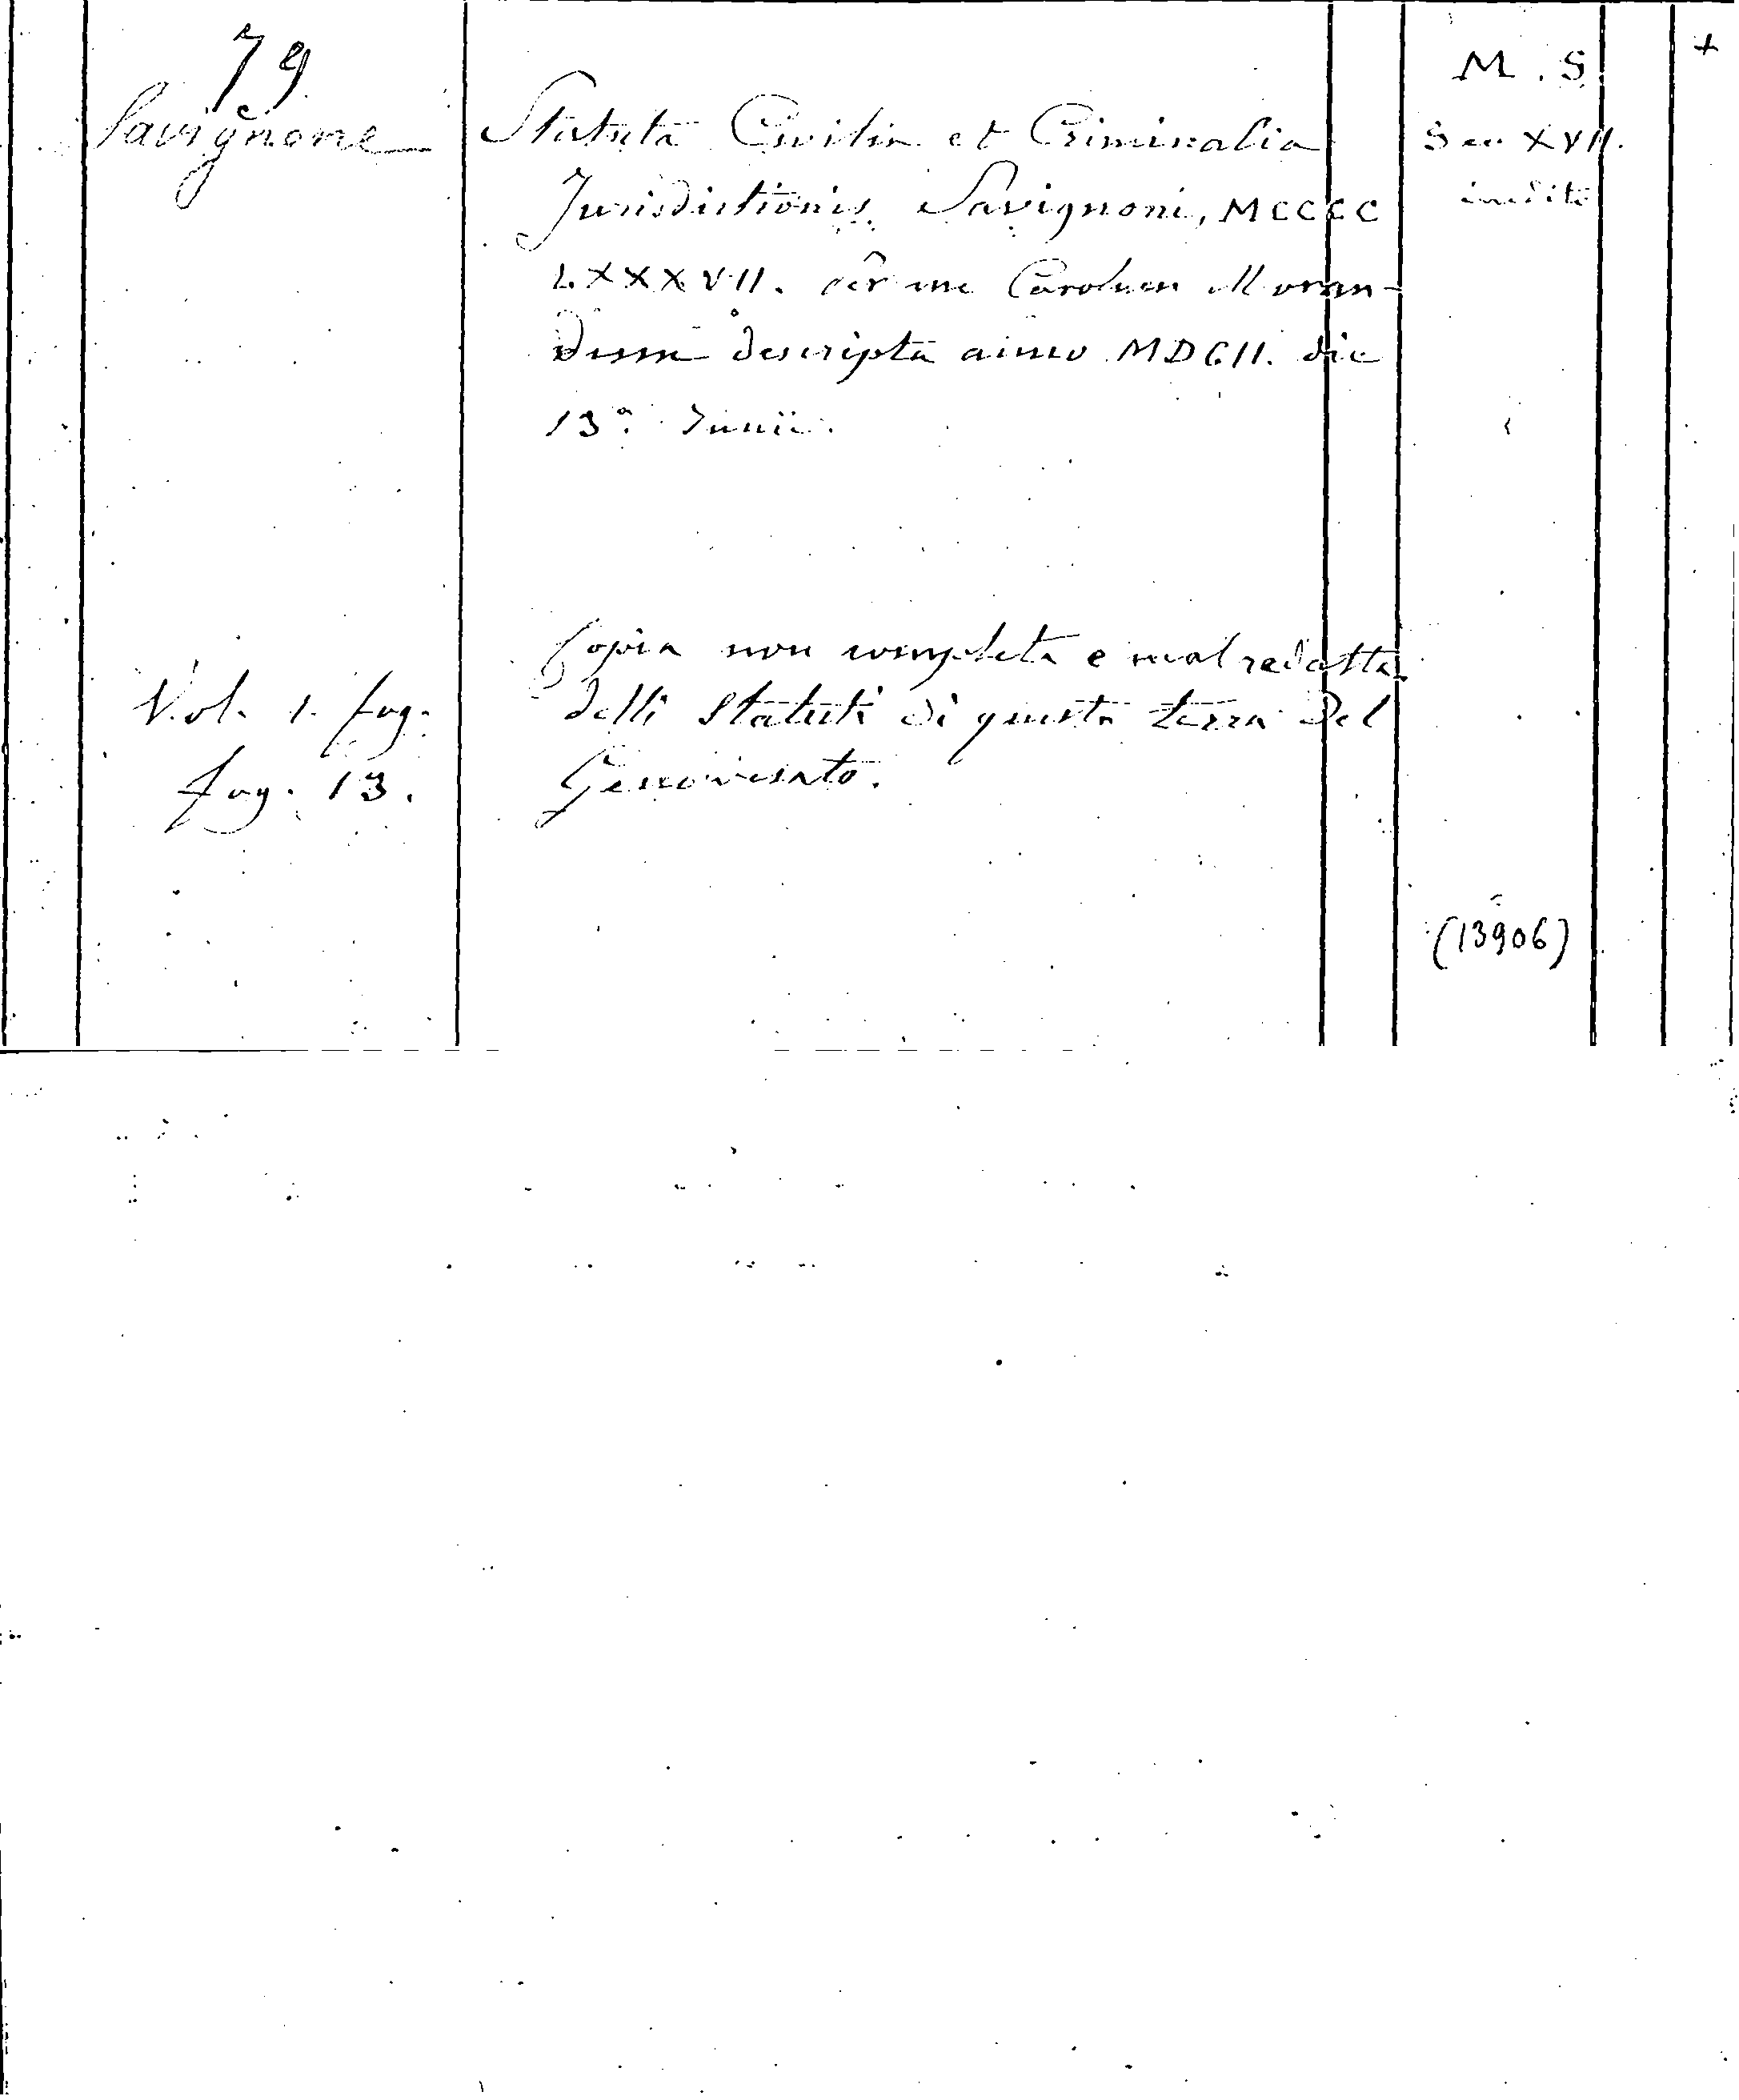 79
Savignone
Statuta Civilia et Criminalia
Jurisdictionis Savignoni, MCCCC
LXXXVII. per me Carolum Moran-
dum descripta anno MDCII. die
13ª Junii.
M. S.
Sec XVII.
inedito
+
Copia non completa e mal redatta
delli Statuti di questa terra del
Genovesato.
Vol. 1. fog.
fog. 13.
(13906)